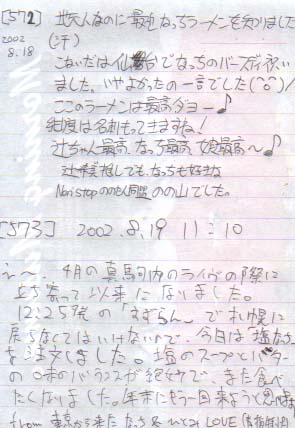 [572] 地元人なのに最近なっちラーメンを知りました
2002 8.18 (汗)
こないだは仙台でなっちのバースディ祝い
ました。いやよかったの一言でした(^o^)/
ここのラーメンは最高ダヨー♪
今度は名刺もってきますね!
辻ちゃん最高、なっち最高、娘。最高～♪
辻希美推しでも、なっちも好きな
Non stop ののたん同盟 のの山でした。
[573] 2002.8.19 11:10
え～、4月の真駒内のライヴの際に
立ち寄って以来になりました。
12:25発の「すずらん」で札幌に
戻らなくてはいけないので、今日は塩なっち
を注文しました。塩のスープとバター
の味のバランスが絶妙で、また食べ
たくなりました。年末にもう一回来ようと思います
from 東京から来た なっち & ひとみ LOVE